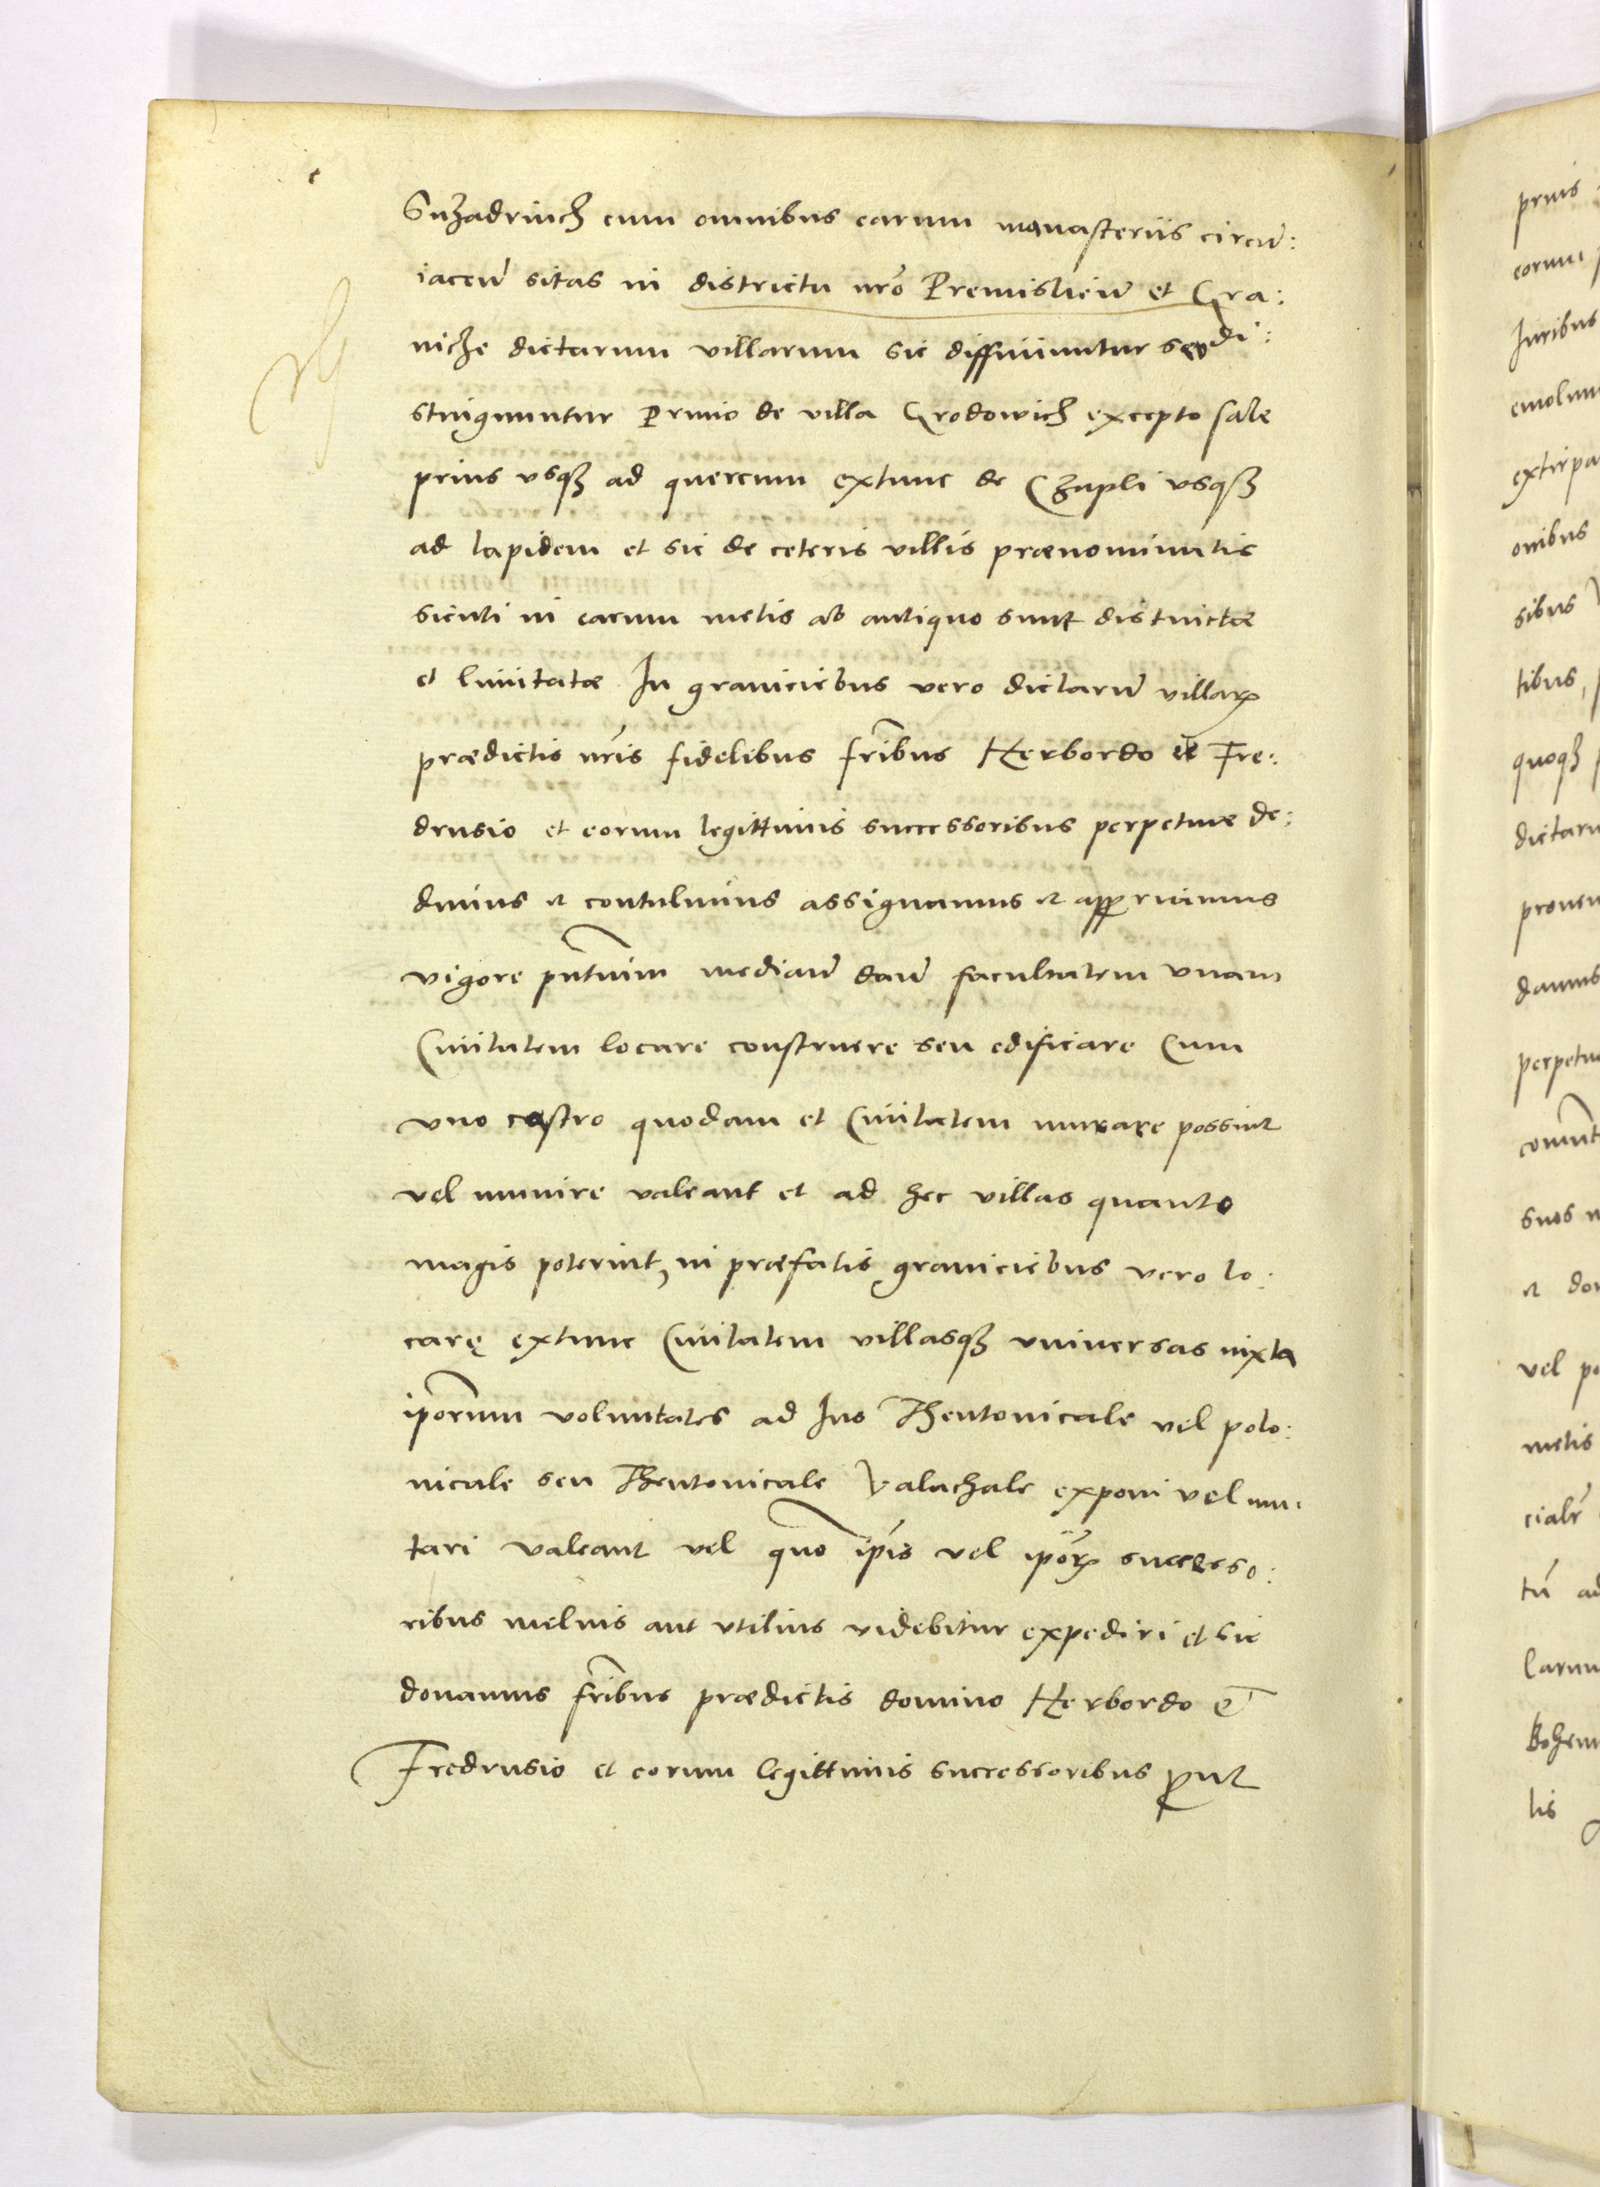 Suzadvinch cum omnibus earum monasteriis circu͂:
iaceñ sitas in districtu nr̃o Premislieñ et Gra:
niche dictarum villarum sic diffiniuntur seu di:
stinguuntur Primo de villa Grodowich excepto sale
prius vsqꝫ ad quercum extunc de Czupli vsqꝫ
ad lapidem et sic de ceteris villis prænominatis
sicuti in earum metis ab antiquo sunt distinctæ
et limitatæ In graniciebus vero dictaru͂ villaꝝ
prædictis nr̃is fidelibus fr̃ibus Herbordo et Fre:
drusio et eorum legittimis successoribus perpetuæ de:
dimus et contulimus assignamus et apperuimus
vigore pñtium mediañ dañ facultatem vnam
Ciuitatem locare construere seu edificare Cum
vno castro quodam et Ciuitatem murare possint
vel munire valeant et ad hec villas quanto
magis poterint, in præfatis graniciebus vero lo:
care extunc Ciuitatem villasqꝫ vniuersas iuxta
ipõrum voluntates ad Ius Theutonicale vel polo:
nicale seu Theutonicale Valachale exponi vel mu:
tari valeant vel quõ ip̃is vel ipõꝝ successo:
ribus melius aut vtilius videbitur expediri et sic
donamus fr̃ibus prædictis domino Herbordo et
Fredrusio et eorum legittimis successoribus ꝓut
prius
eorum
Iuribus
emolum
extirpa
onibus
sibus
tibus,
quoqꝫ
dictaru
prouen
damus
perpetu
suos
et
vel
metis
tu͂ ad
larum
Bohem
lis